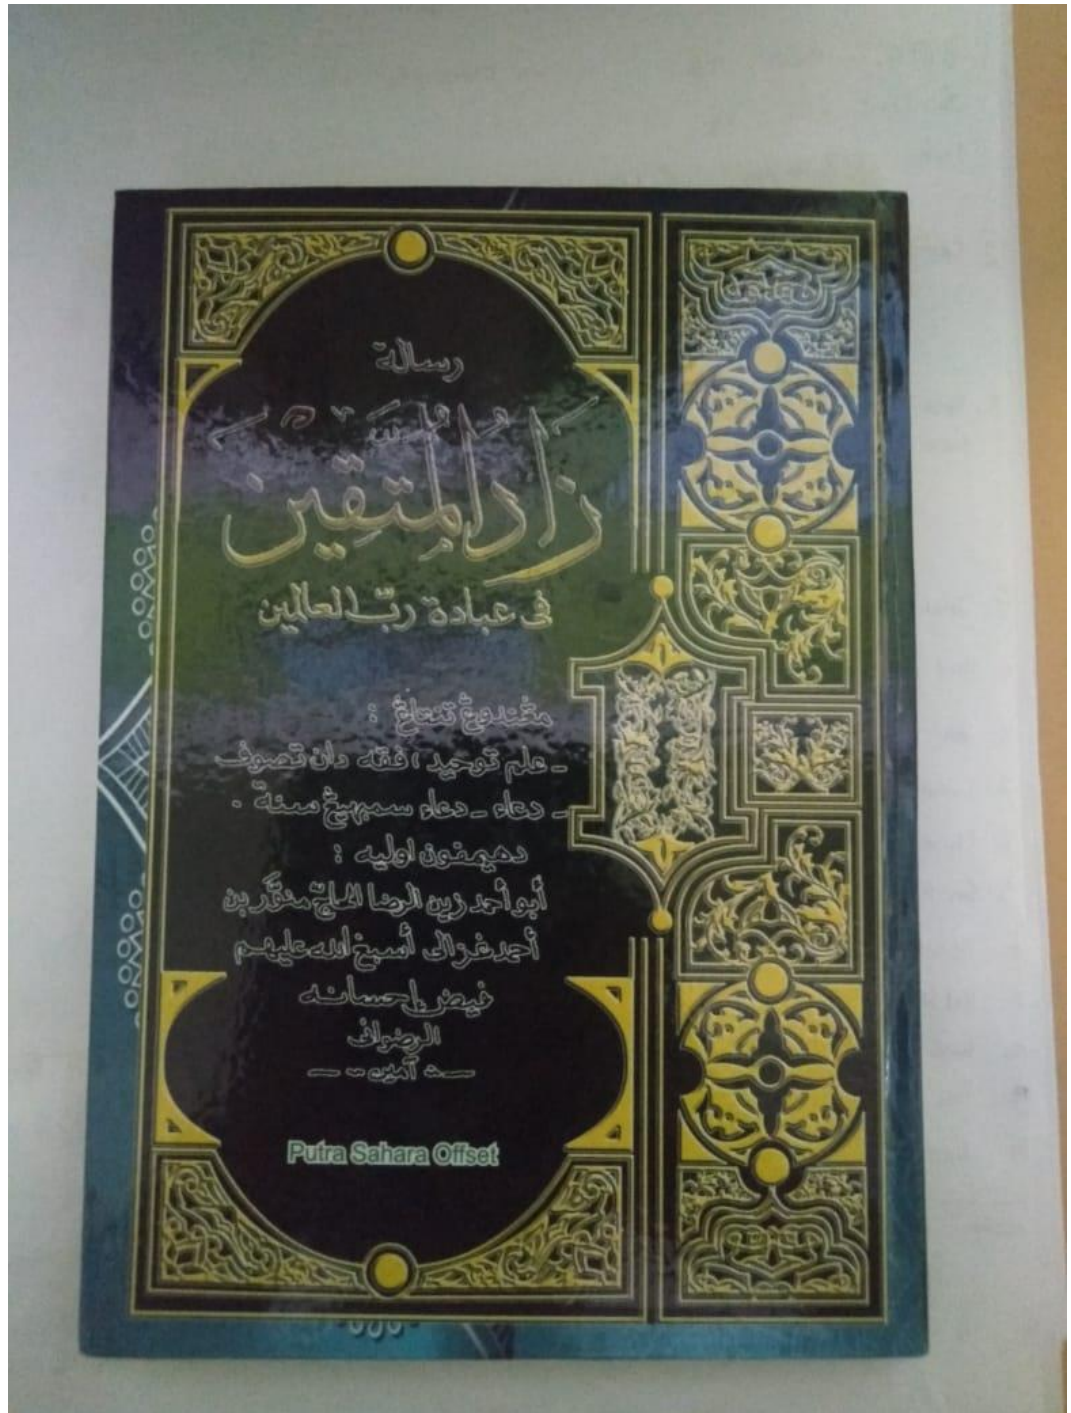 رسالة
زَادُ الْمُتَّقِيْنَ
فى عبادة ربّ العالمين
مڠندوڠ تنتاڠ :
- علم توحيد ، فقه دان تصوف
- دعاء - دعاء سمبهيڠ سنة .
دهيمفون اوليه :
أبو أحمد زين الرضا الحاجّ منوَّر بن
أحمد غزالى أسبغ الله عليهم
فيض إحسانه
الرضوانى
آمين
Putra Sahara Offset